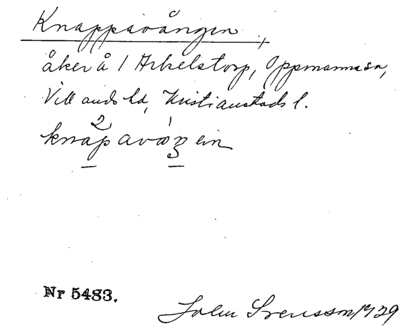 Knappavången,
åker å 1 Arkelstorp, Oppmanna sn,
Villands hd, Kristianstads l.
knapavaŋ ein
Nr 5483.
John Svensson 1929